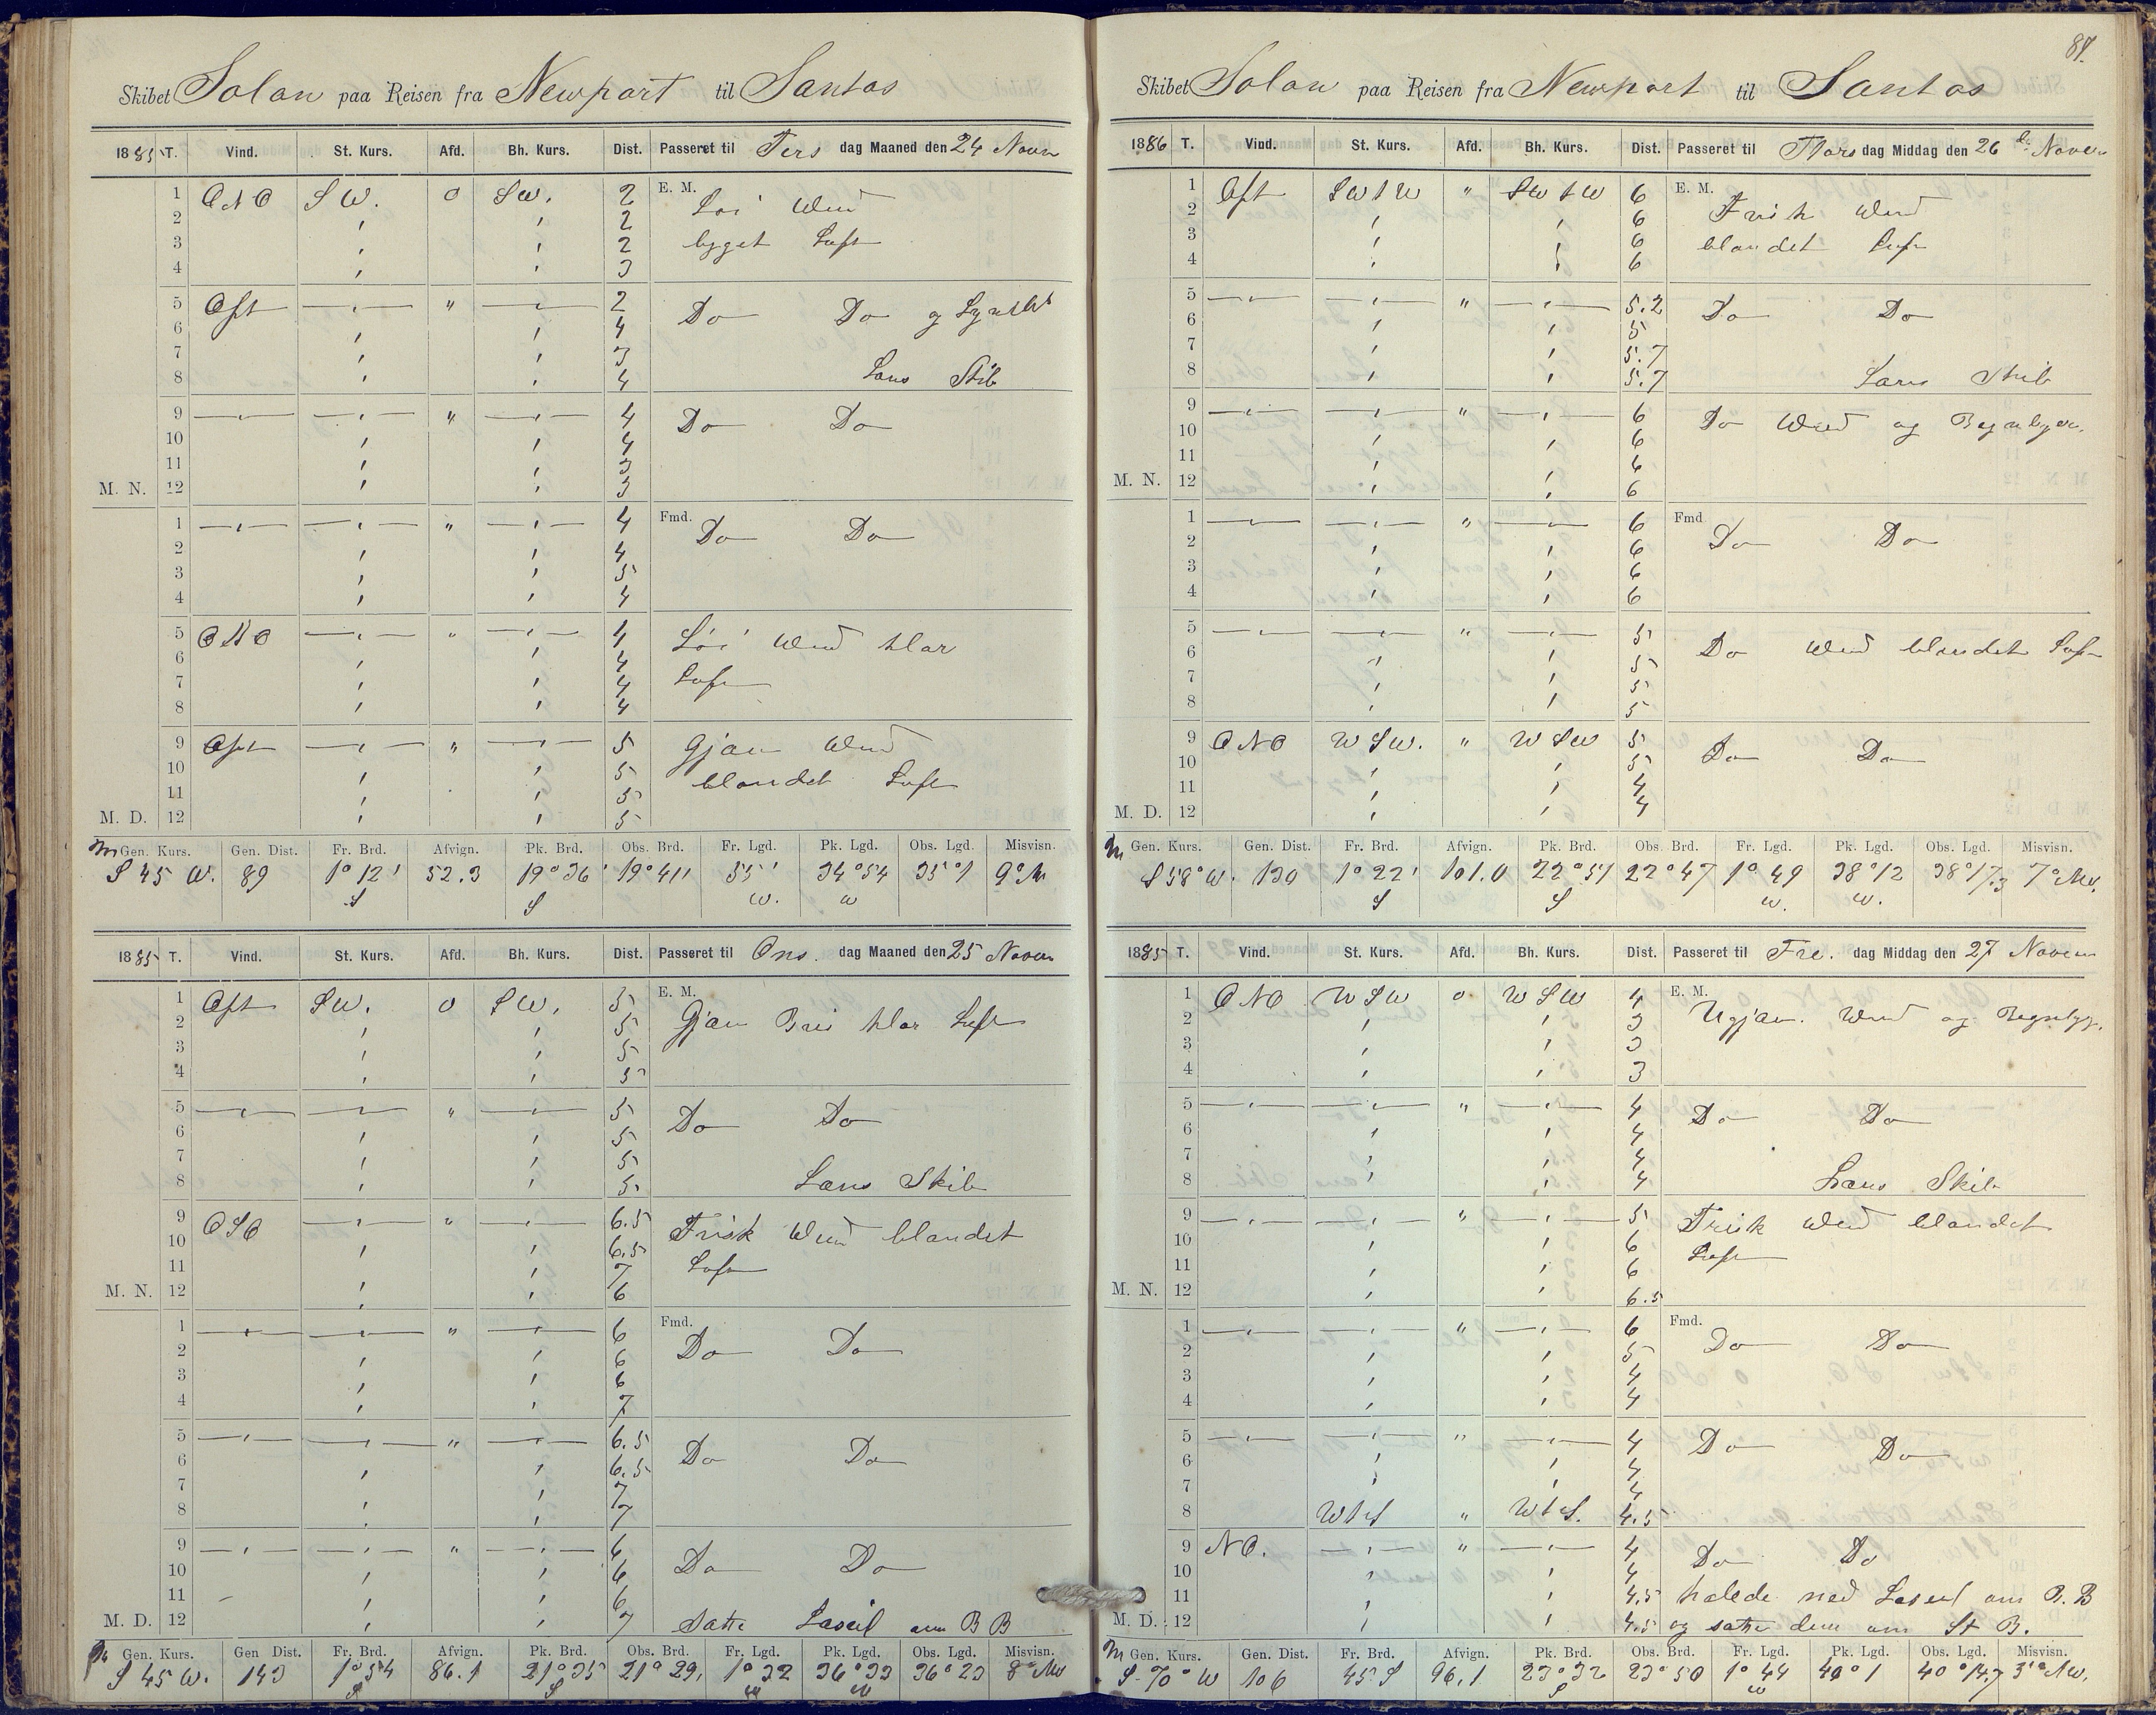 Skibet Solan paa Reisen fra Newport til Santos
1885 T. Vind. St. Kurs. Afd. Bh. Kurs. Dist. Passeret til Tirs dag Maaned den 24 Novem
1 ONO SW. 0 SW. 2 E. M. Löi Wind
2 " " 2
3 " " 2 bygget Luft
4 " " 3
5 Ost — " — " — " — 2 Do Do og
6 " " 4
7 " " 3
8 " " 4 Læns Skib
9 — " — — " — " — " — 4 Do Do
10 " " 4
11 " " 3
M. N. 12 " " 3
1 — " — — " — " — " — 4 Fmd. Do Do
2 " " 4
3 " " 5
4 " " 4
5 ONO — " — " — " — 4 Löi Wind klar
6 " " 4
7 " " 4 Luft
8 " " 4
9 Ost — " — " — " — 5 Gjæv Wind
10 " " 5
11 " " 5 blandet Luft
M. D. 12 " " 5
Gen. Kurs. Gen. Dist. Fr. Brd. Afvign. Pk. Brd. Obs. Brd. Fr. Lgd. Pk. Lgd. Obs. Lgd. Misvisn.
S 45 W. 89 1° 12' 52.3 19° 36' 19° 41' 55' 34° 54 35° 1 9°
S S W. W
1885 T. Vind. St. Kurs. Afd. Bh. Kurs. Dist. Passeret til Ons. dag Maaned den 25 Novem
1 Ost SW. 0 SW. 5 E. M. Gjæv Bris klar Luft
2 " " 5
3 " " 5
4 " " 5
5 — " — — " — " — " — 5 Do Do
6 " " 5
7 " " 5
8 " " 5 Læns Skib
9 OSO — " — " — " — 6.5 Frisk Wind blandet
10 " " 6.5
11 " " 7 Luft
M. N. 12 " " 6
1 — " — — " — " — " — 6 Fmd. Do Do
2 " " 6
3 " " 6
4 " " 7
5 — " — — " — " — " — 6.5 Do Do
6 " " 6.5
7 " " 7
8 " " 7
9 — " — — " — " — " — 6 Do Do
10 " " 6
11 " " 6
M. D. 12 " " 7 Satte Læseil om B B
Gen. Kurs. Gen Dist. Fr. Brd. Afvign. Pk. Brd. Obs. Brd. Fr. Lgd. Pk. Lgd. Obs. Lgd. Misvisn.
S 45 W. 143 1° 54 86.1 21° 35 21° 29, 1° 32 36° 33 36° 23 8°
S S W W
87.
Skibet Solan paa Reisen fra Newport til Santos
1886 T. Vind. St. Kurs. Afd. Bh. Kurs. Dist. Passeret til Thors dag Middag den 26 de Novem
1 Ost SWtW " SWtW 6 E. M. Frisk Wind
2 " " 6
3 " " 6 blandet Luft
4 " " 6
5 — " — — " — " — " — 5.2 Do Do
6 " " 5
7 " " 5.7
8 " " 5.7 Læns Skib
9 — " — — " — " — " — 6 Do Wind og Regnbyer.
10 " " 6
11 " " 6
M. N. 12 " " 6
1 — " — — " — " — " — 6 Fmd Do Do
2 " " 6
3 " " 6
4 " " 6
5 — " — — " — " — " — 5 Do Wind blandet Luft
6 " " 5
7 " " 5
8 " " 5
9 ONO WSW. " WSW 5 Do Do
10 " " 5
11 " " 4
M. D. 12 " " 4
Gen. Kurs. Gen. Dist. Fr. Brd. Afvign. Pk. Brd. Obs. Brd. Fr. Lgd. Pk. Lgd. Obs. Lgd. Misvisn.
S 58° W. 130 1° 22' 101.0 22° 51 22° 47 1° 49 38° 12 38° 17.3 7°
S S W. W.
1885 T. Vind. St. Kurs. Afd. Bh. Kurs. Dist. Passeret til Fre. dag Middag den 27 Novem
1 ONO WSW 0 WSW 4 E. M. Ugjæv. Wind og Regnbyg.
2 " " 3
3 " " 3
4 " " 3
5 — " — — " — " — " — 4 Do Do
6 " " 4
7 " " 4
8 " " 4 Læns Skib
9 — " — — " — " — " — 5 Frisk Wind blandet
10 " " 6 Luft
11 " " 6
M. N. 12 " " 6.5
1 — " — — " — " — " — 6 Fmd. Do Do
2 " " 5
3 " " 4
4 " " 4
5 — " — — " — " — " — 4 Do Do
6 " " 4
7 " " 4
8 WtS " WtS. 4.5
9 NO. — " — " — " — 4 Do Do
10 " " 4
11 " " 4.5 halede ned Læseil om B. B
M. D. 12 " " 4.5 og satte dem om St B.
Gen. Kurs. Gen. Dist. Fr. Brd. Afvign. Pk. Brd. Obs. Brd. Fr. Lgd. Pk. Lgd. Obs. Lgd. Misvisn.
S. 70° W 106 45. S 96.1 23° 32 23° 50 1° 44 40° 1 40° 14.7
S W